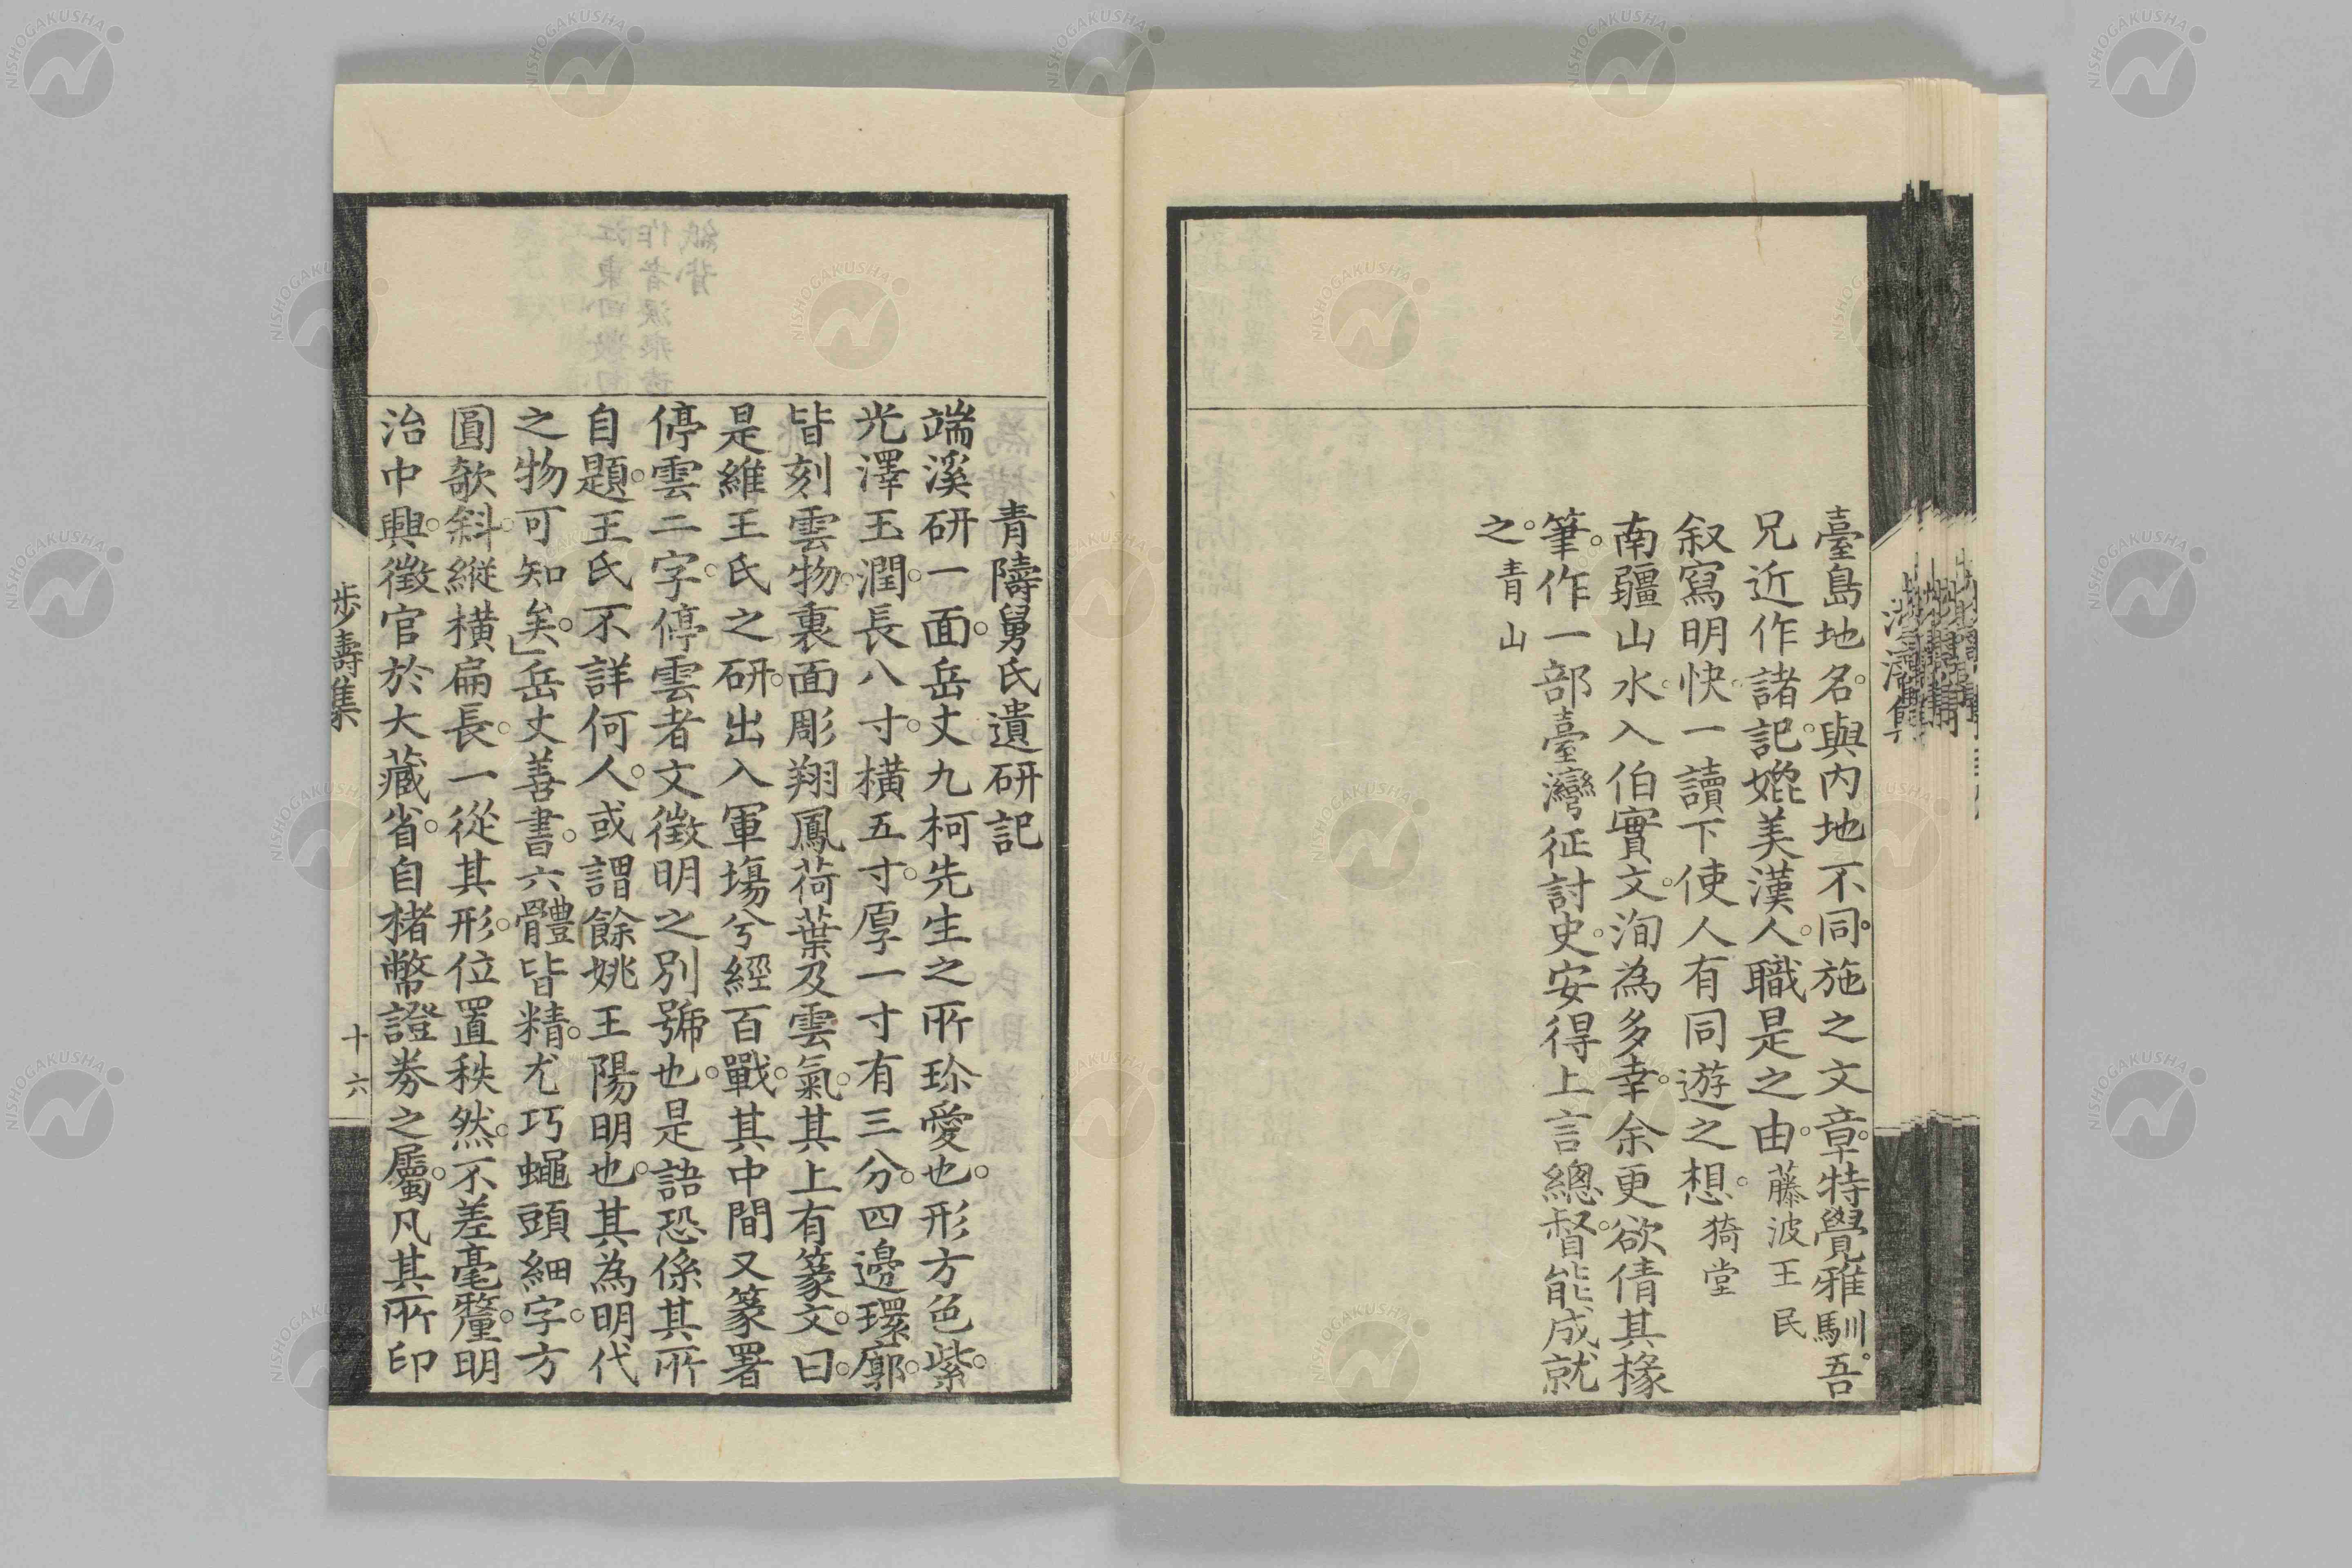 臺島地名。與內地不同。施之文章。特覺雅馴。吾
兄近作諸記。媲美漢人。職是之由。藤波王民
叙寫明快。一讀下使人有同遊之想。猗堂
南疆山水。入伯實文。洵為多幸。余更欲倩其椽
筆。作一部臺灣征討史。安得上言總督。能成就
之。青山
青隯舅氏遺研記
端溪研一面。岳丈九柯先生之所珍愛也。形方色紫。
光澤玉潤。長八寸。橫五寸。厚一寸有三分。四邊環廓。
皆刻雲物。裏面彫翔鳳荷葉及雲氣。其上有篆文。曰。
是維王氏之研。出入軍塲兮經百戰。其中間又篆署
停雲二字。停雲者文徵明之別號也。是語恐係其所
自題。王氏不詳何人。或謂餘姚王陽明也。其為明代
之物可知矣。」岳丈善書。六體皆精。尤巧蠅頭細字。方
圓欹斜。縱橫扁長。一從其形。位置秩然。不差毫釐。明
治中興。徵官於大藏省。自楮幣證券之屬。凡其所印
步壽集
十六
NISHOGAKUSHA